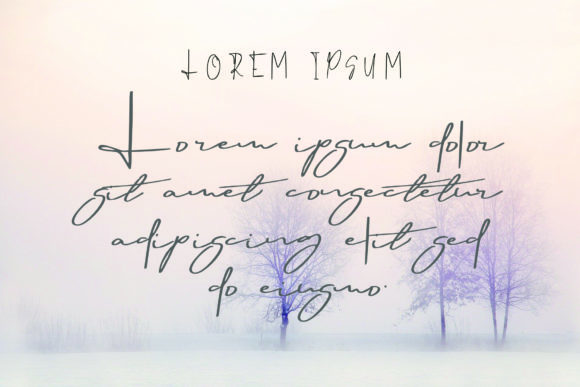 LOREM IPSUM
Lorem ipsum dolor
sit amet consectetur
adipiscing elit sed
do eiusmo.